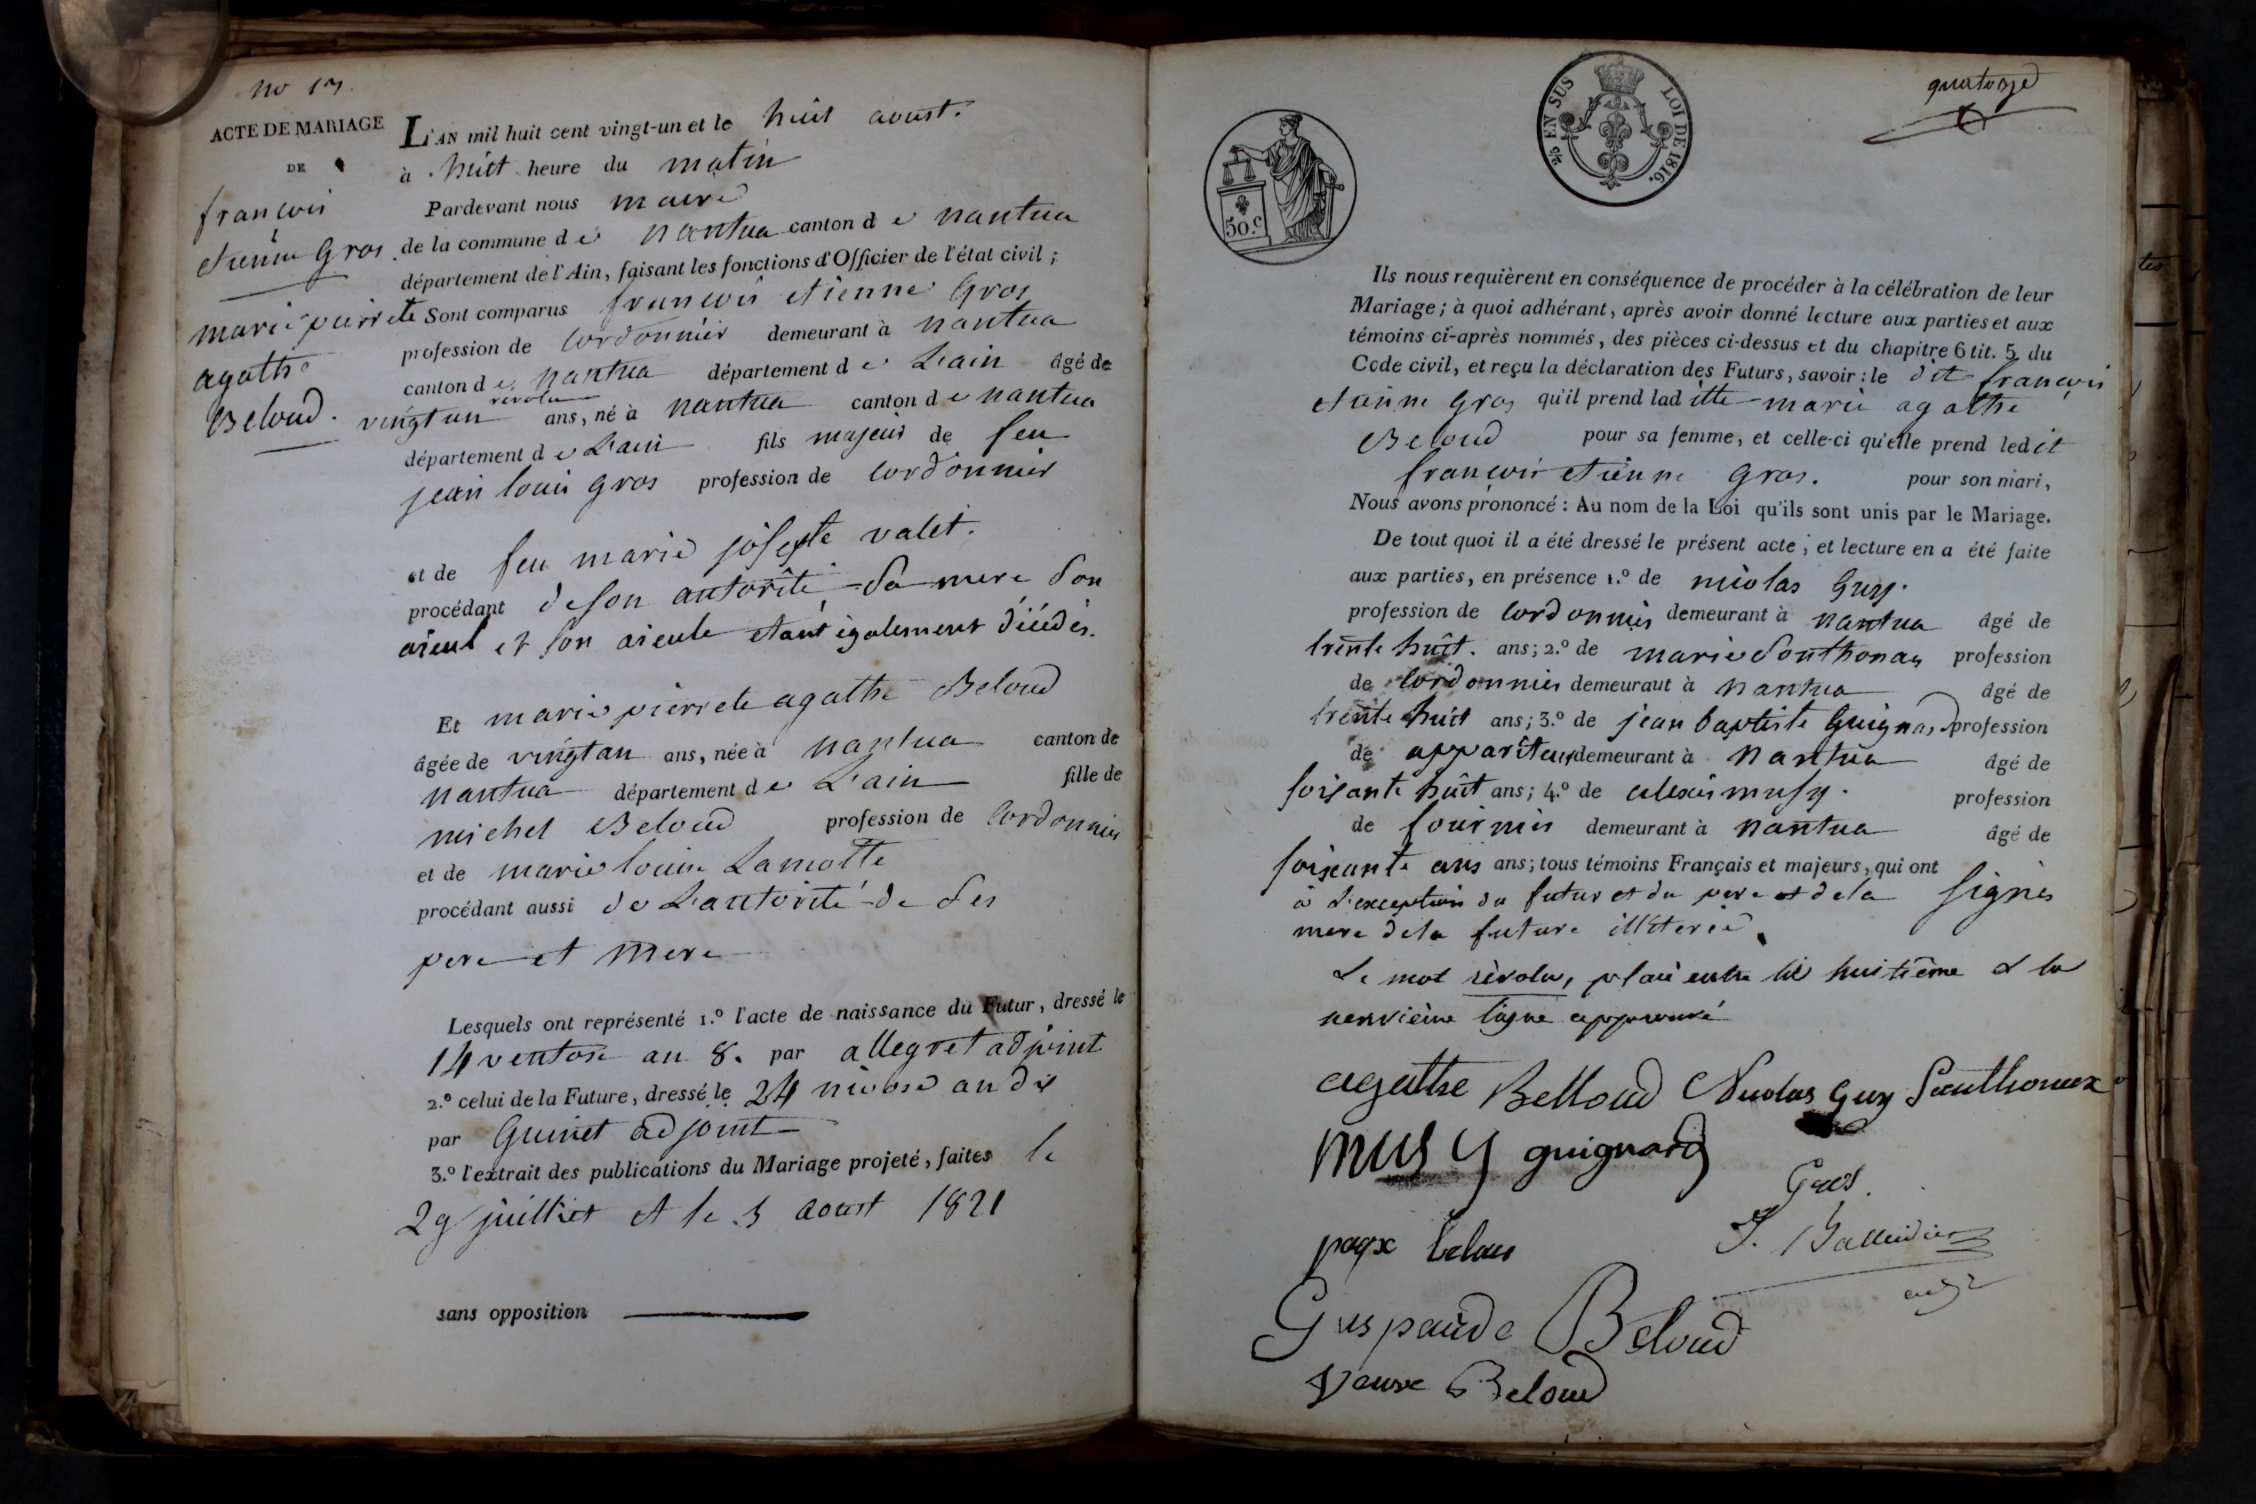 no 13.
ACTE DE MARIAGE
DE
françois
etienne Gros
marie pierrete
agathe
Beloud.
L'AN mil huit cent vingt-un et le huit aoust.
à huit heure du matin
Pardevant nous maire
de la commune de nantua canton de nantua
département de l'Ain, faisant les fonctions d'Officier de l'état civil ;
Sont comparus françois etienne Gros
profession de Cordonnier demeurant à nantua
canton de nantua département de L'ain âgé de
révolu
vingt un ans, né à nantua canton de nantua
département de L'ain fils majeur de feu
jean louis gros profession de Cordonnier
et de feu marie josepte valet.
procédant de son autorité sa mere son
aieul et son aieule etant également décédés.
Et marie pierrete agathe Beloud
âgée de vingt an ans, née à nantua canton de
nantua département de L'ain fille de
michel Beloud profession de Cordonnier
et de marie louise Lamotte
procédant aussi de L'autorité de ses
pere et mere
Lesquels ont représenté 1.º l'acte de naissance du Futur, dressé le
14 ventose an 8. par allegret adjoint
2.º celui de la Future, dressé le 24 nivose an dix
par Guinet adjoint
3.º l'extrait des publications du Mariage projeté, faites le
29 juilliet et le 5 aoust 1821
sans opposition
quatorze
EN SUS LOI DE 1816.
50.c
Ils nous requièrent en conséquence de procéder à la célébration de leur
Mariage ; à quoi adhérant, après avoir donné lecture aux parties et aux
témoins ci-après nommés, des pièces ci-dessus et du chapitre 6 tit. 5 du
Code civil, et reçu la déclaration des Futurs, savoir : le dit françois
etienne gros qu'il prend laditte marie agathe
Beloud pour sa femme, et celle-ci qu'elle prend ledit
françois etienne gros. pour son mari,
Nous avons prononcé : Au nom de la Loi qu'ils sont unis par le Mariage.
De tout quoi il a été dressé le présent acte ; et lecture en a été faite
aux parties, en présence 1.º de nicolas Guy.
profession de Cordonnier demeurant à nantua âgé de
trente huit. ans ; 2.º de marie Southonax profession
de Cordonnier demeuraut à nantua âgé de
trente huit ans ; 3.º de jean baptiste Guignard profession
de appariteur demeurant à nantua âgé de
soisante huit ans ; 4.º de alexis musy. profession
de fournier demeurant à nantua âgé de
soissante ans ans ; tous témoins Français et majeurs, qui ont
à L'exception du futur et du pere et de la signés
mere de la future illiterés.
Le mot révolu, placé entre la huitième et la
neuvième ligne approuvé
agathe Belloud Nicolas Guy Santhonax
musy guignard
Gros.
Gaspaude Beloud
veuve Beloud